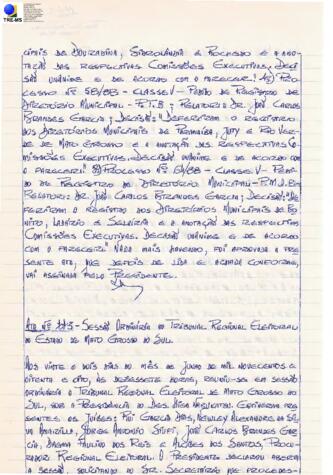 TRE-MS
cipais de Douradina, Sidrolândia e Rochedo e a ano-
tação das respectivas Comissões Executivas. Deci-
são unânime e de acordo com o parecer". 4) Pro-
cesso nº 58/88 - Classe V - Pedido de Registro de
Diretório Municipal - P.T.B; Relator: Dr. José Carlos
Brandes Garcia; Decisão: "Deferiram o registro
dos Diretórios Municipais de Jaraguari, Juty e Rio Ver-
de de Mato Grosso e a anotação das respectivas Co-
missões Executivas. Decisão unânime e de acordo
com o parecer". 5) Processo nº /88 - Classe V - Pedi-
do de Registro de Diretório Municipal - P.M.D.B;
Relator: Dr. José Carlos Brandes Garcia; Decisão: "De-
feriram o registro dos Diretórios Municipais de Bo-
nito, Ladário e Selvíria e a anotação das respectivas
Comissões Executivas. Decisão unânime e de acordo
com o parecer". Nada mais havendo, foi aprovada a pre-
sente ata, que depois de lida e achada conforme,
vai assinada pelo Presidente.
Ata nº - Sessão Ordinária do Tribunal Regional Eleitoral
do Estado de Mato Grosso do Sul.
Aos vinte e dias do mês de junho de mil novecentos e
oitenta e oito, às dezessete horas, reuniu-se em sessão
ordinária o Tribunal Regional Eleitoral de Mato Grosso do
Sul, sob a Presidência do Des. Estiveram pre-
sentes os Juízes: Rui Garcia Dias, Nerley Alexandre da Sil-
va, Jorge Antonio Siufi, José Carlos Brandes Gar-
cia, Dagma Paulino dos Reis e Alcides dos Santos, Procu-
rador Regional Eleitoral. O Presidente declarou aberta
a sessão, solicitando ao Sr. Secretário que procedes-